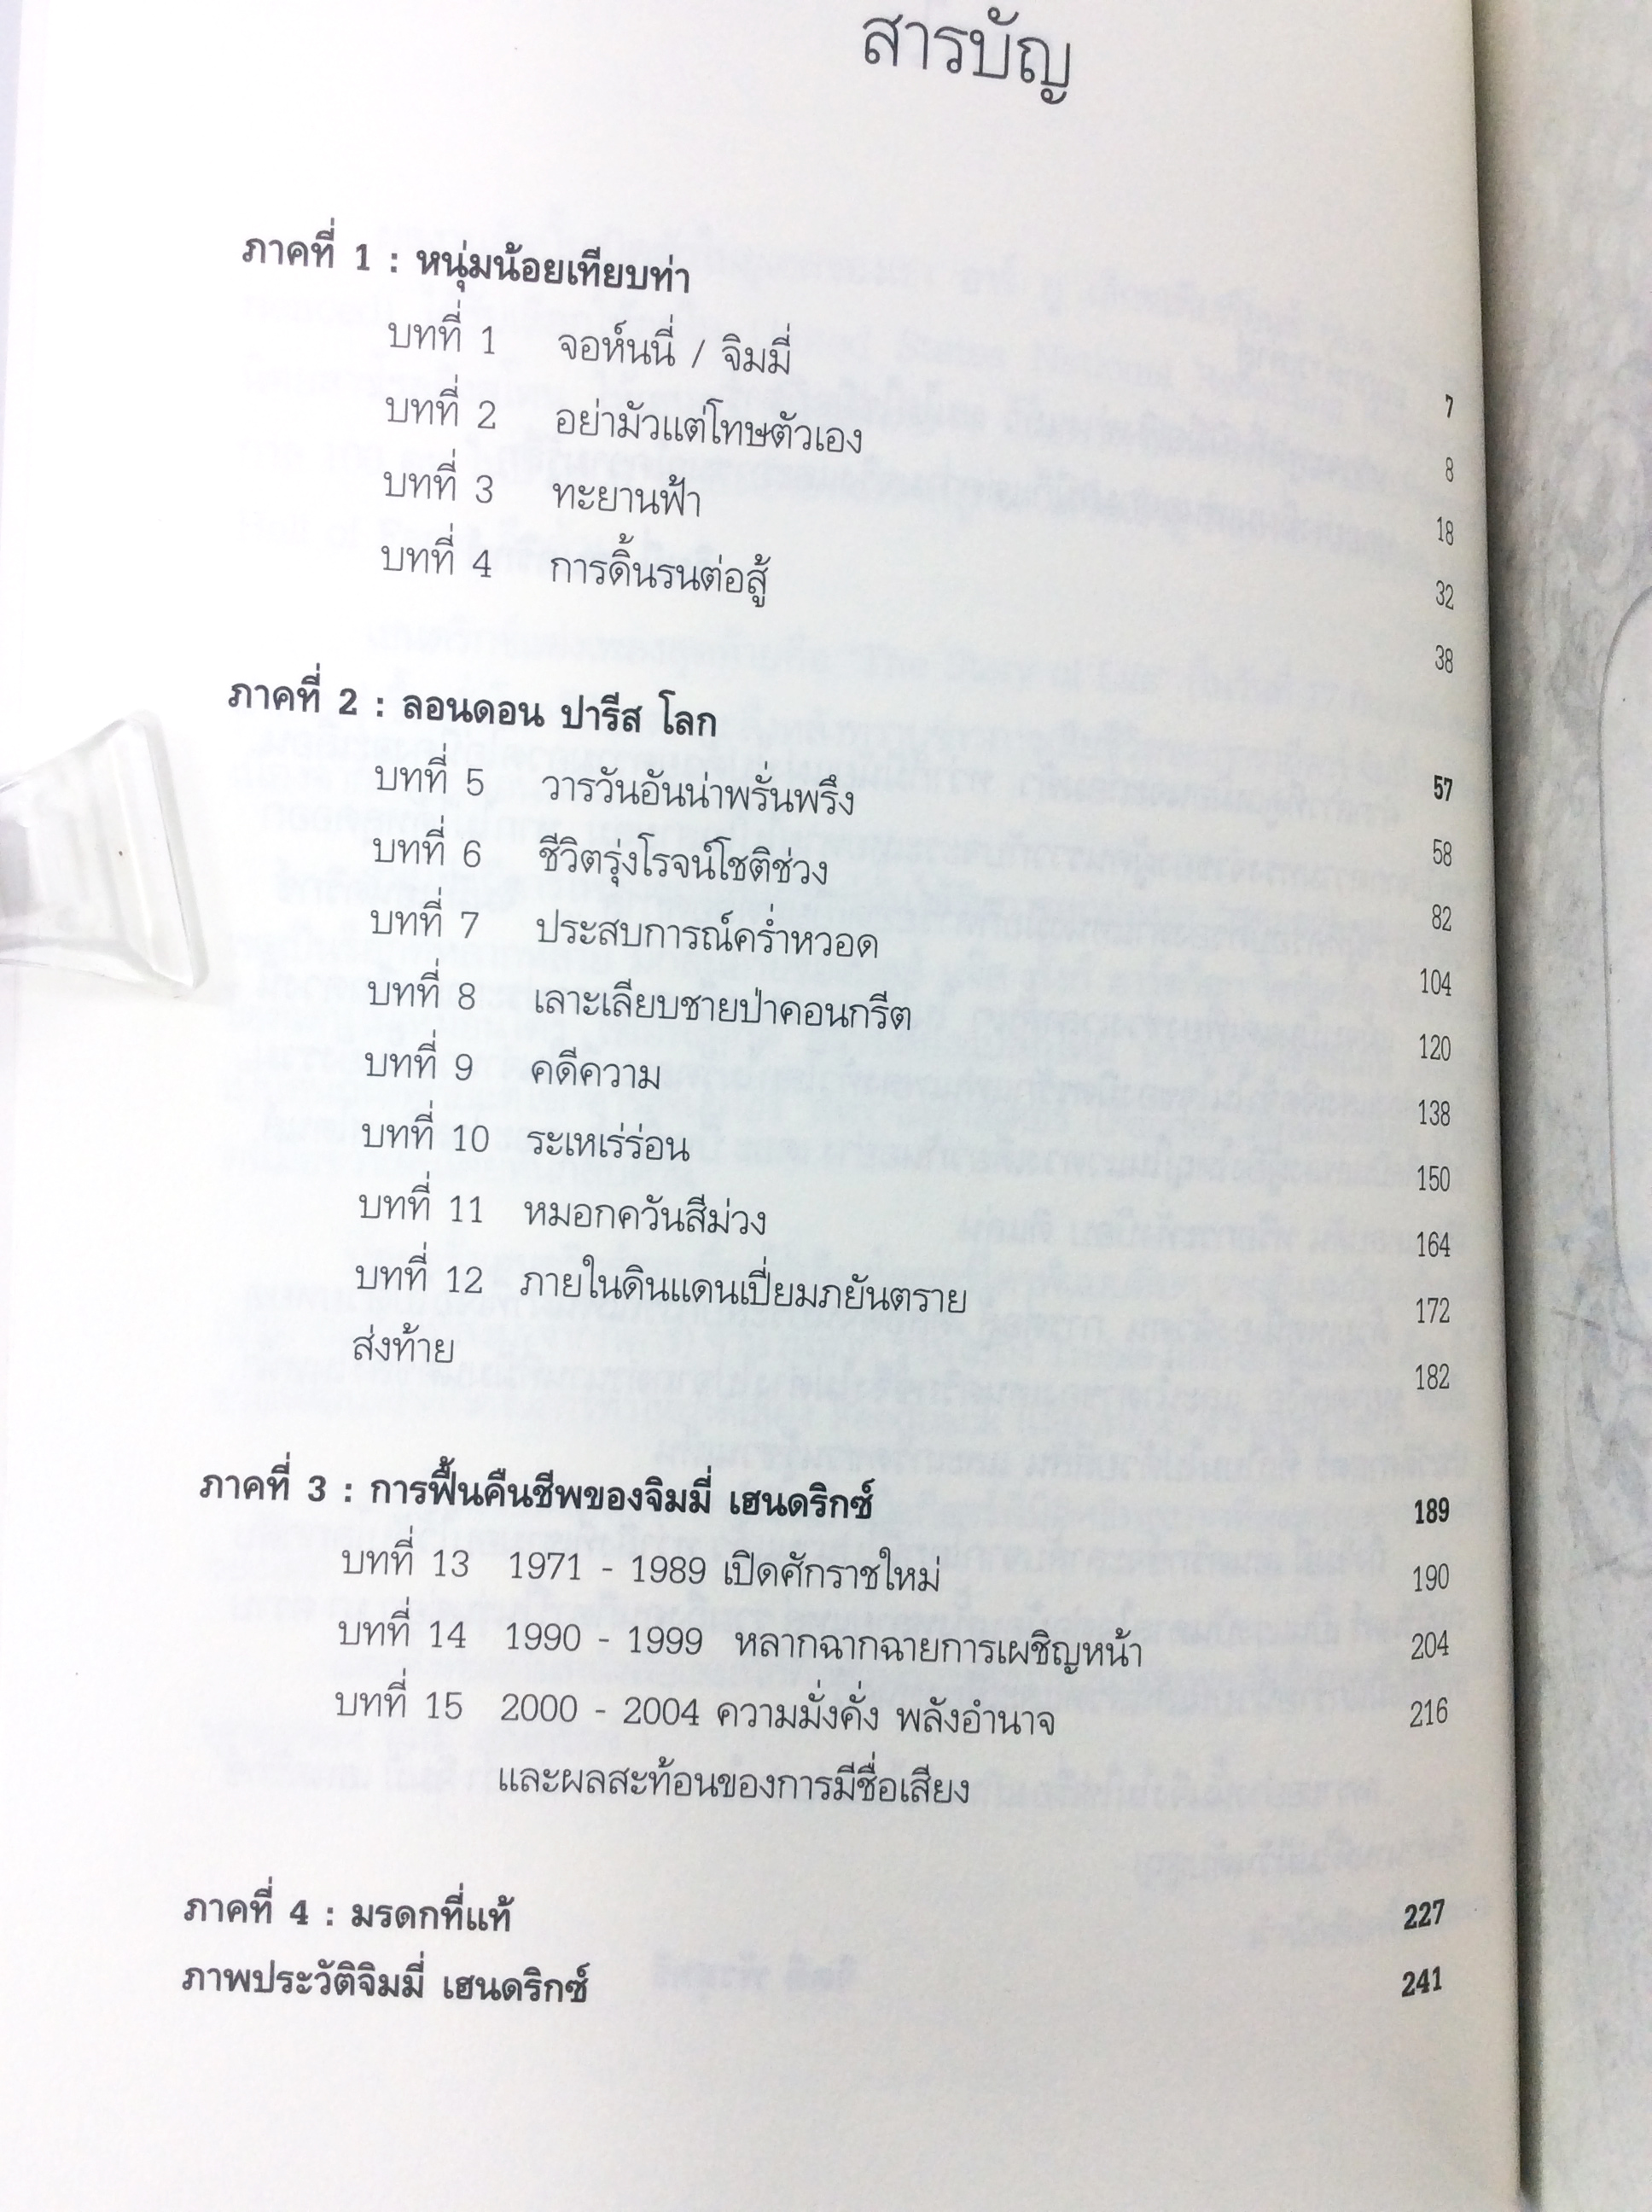 สารบัญ
ภาคที่ 1 : หนุ่มน้อยเทียบท่า 7
บทที่ 1 จอห์นนี่ / จิมมี่ 8
บทที่ 2 อย่ามัวแต่โทษตัวเอง 18
บทที่ 3 ทะยานฟ้า 32
บทที่ 4 การดิ้นรนต่อสู้ 38
ภาคที่ 2 : ลอนดอน ปารีส โลก 57
บทที่ 5 วารวันอันน่าพรั่นพรึง 58
บทที่ 6 ชีวิตรุ่งโรจน์โชติช่วง 82
บทที่ 7 ประสบการณ์คร่ำหวอด 104
บทที่ 8 เลาะเลียบชายป่าคอนกรีต 120
บทที่ 9 คดีความ 138
บทที่ 10 ระเหเร่ร่อน 150
บทที่ 11 หมอกควันสีม่วง 164
บทที่ 12 ภายในดินแดนเปี่ยมภยันตราย 172
ส่งท้าย 182
ภาคที่ 3 : การฟื้นคืนชีพของจิมมี่ เฮนดริกซ์ 189
บทที่ 13 1971 - 1989 เปิดศักราชใหม่ 190
บทที่ 14 1990 - 1999 หลากฉากฉายการเผชิญหน้า 204
บทที่ 15 2000 - 2004 ความมั่งคั่ง พลังอำนาจ 216
และผลสะท้อนของการมีชื่อเสียง
ภาคที่ 4 : มรดกที่แท้ 227
ภาพประวัติจิมมี่ เฮนดริกซ์ 241